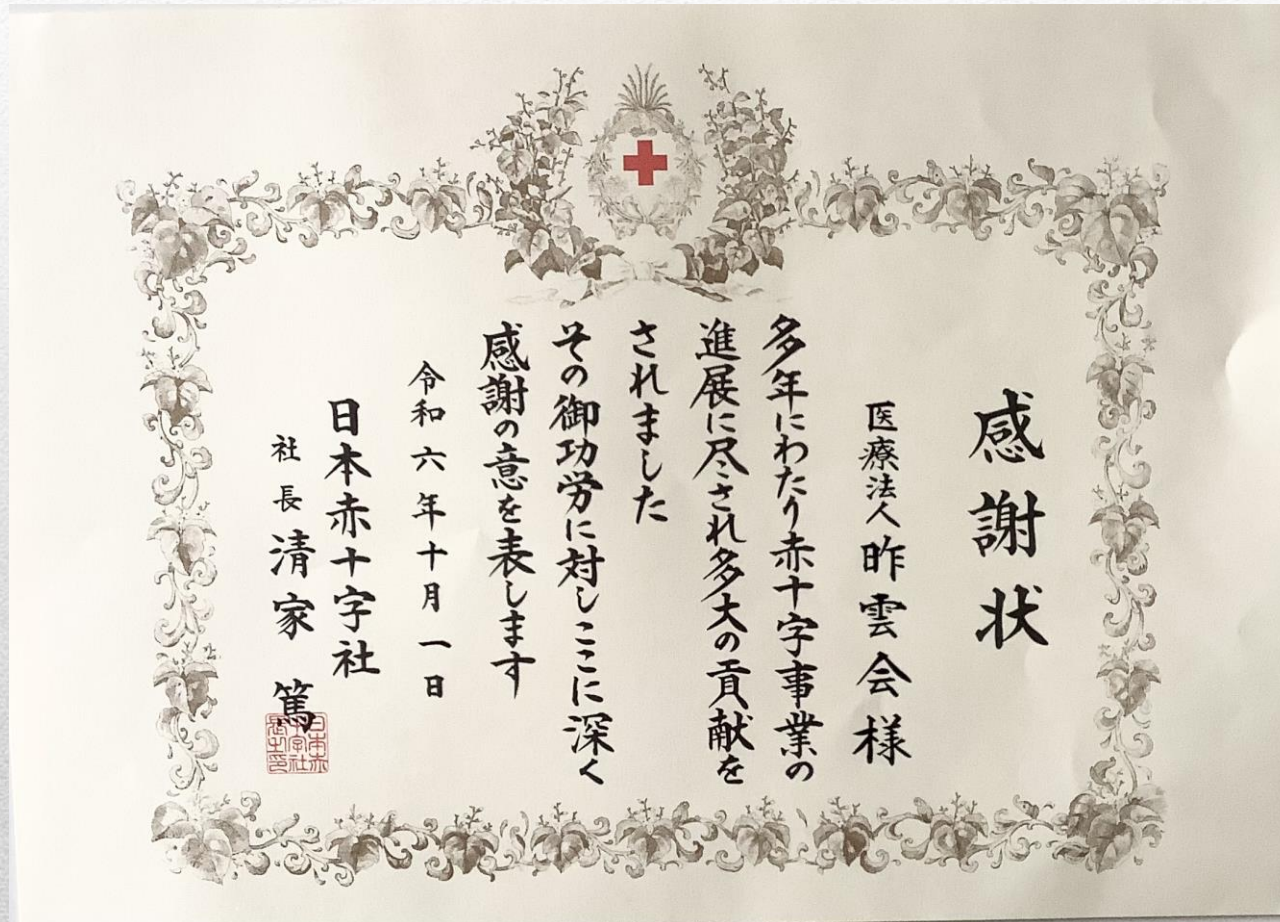 感謝状
医療法人昨雲会様
多年にわたり赤十字事業の
進展に尽され多大の貢献を
されました
その御功労に対しここに深く
感謝の意を表します
令和六年十月一日
日本赤十字社
社長清家篤
日本赤
十字社